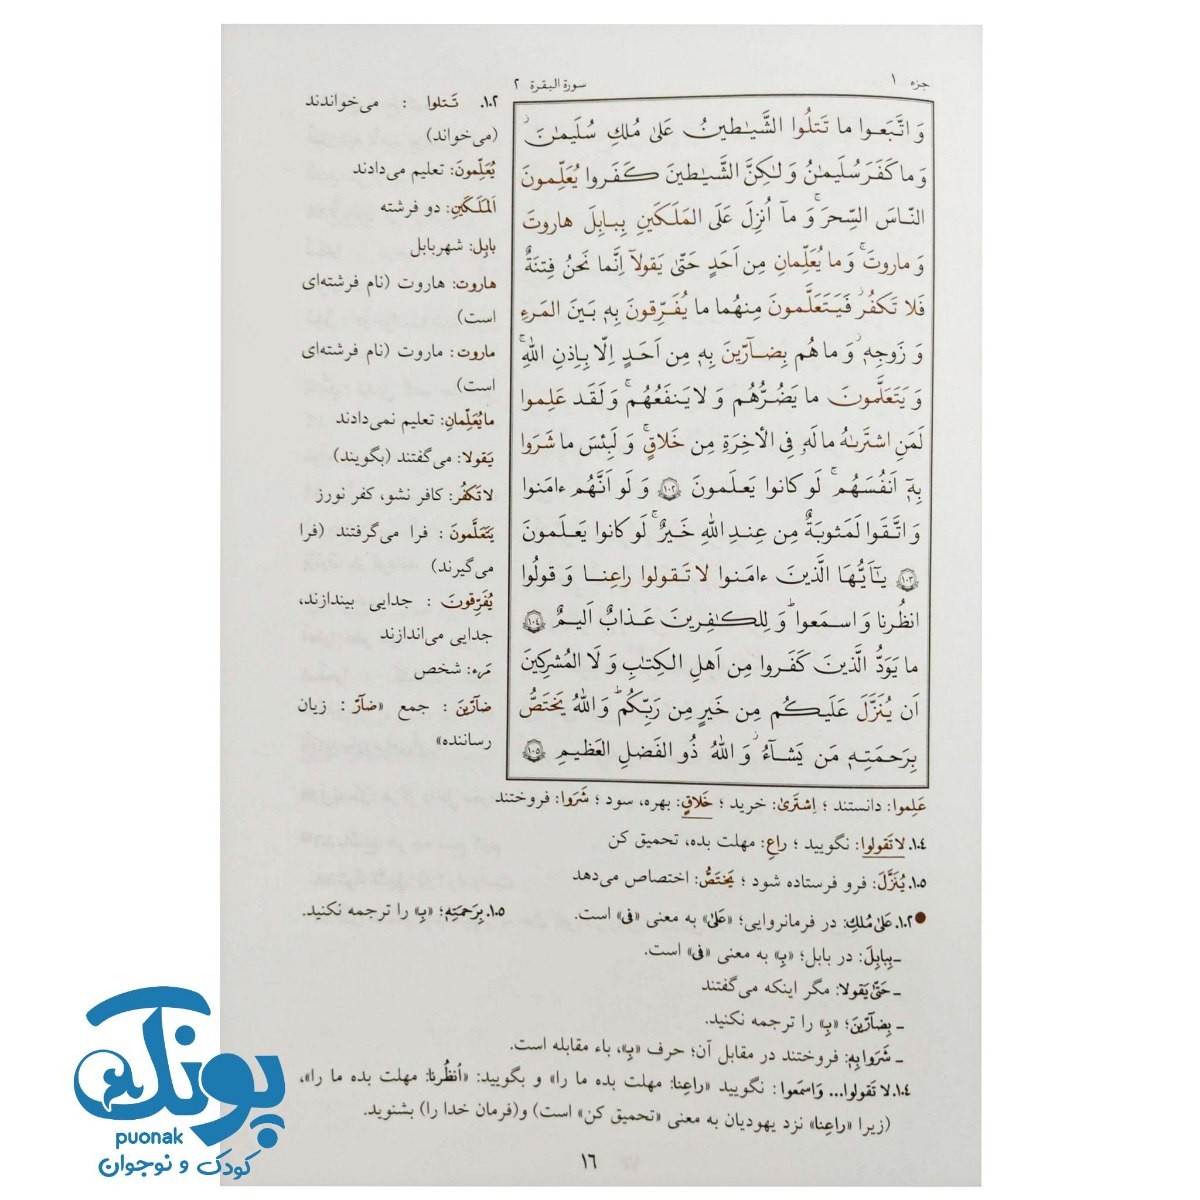 جزء ۱
سورة البقرة ۲
وَ اتَّبَعوا ما تَتلُوا الشَّيـٰطينُ عَلىٰ مُلكِ سُلَيمـٰنَ ۖ
وَ ما كَفَرَ سُلَيمـٰنُ وَ لـٰكِنَّ الشَّيـٰطينَ كَفَروا يُعَلِّمونَ
النّاسَ السِّحرَ وَ مآ اُنزِلَ عَلَى المَلَكَينِ بِبابِلَ هاروتَ
وَ ماروتَ ۚ وَ ما يُعَلِّمانِ مِن اَحَدٍ حَتّىٰ يَقولآ اِنَّما نَحنُ فِتنَةٌ
فَلا تَكفُر ۖ فَيَتَعَلَّمونَ مِنهُما ما يُفَرِّقونَ بِهٖ بَينَ المَرءِ
وَ زَوجِهٖ ۚ وَ ما هُم بِضآرّينَ بِهٖ مِن اَحَدٍ اِلّا بِاِذنِ اللّٰهِ ۚ
وَ يَتَعَلَّمونَ ما يَضُرُّهُم وَ لا يَنفَعُهُم ۚ وَ لَقَد عَلِموا
لَمَنِ اشتَرىٰهُ ما لَهٗ فِى الأخِرَةِ مِن خَلاقٍ ۚ وَ لَبِئسَ ما شَرَوا
بِهٖٓ اَنفُسَهُم ۚ لَو كانوا يَعلَمونَ ۱۰۲ وَ لَو اَنَّهُم ءامَنوا
وَ اتَّقَوا لَمَثوبَةٌ مِن عِندِ اللّٰهِ خَيرٌ ۚ لَو كانوا يَعلَمونَ
۱۰۳ يـٰٓاَيُّهَا الَّذينَ ءامَنوا لا تَقولوا راعِنا وَ قولُوا
انظُرنا وَ اسمَعوا ۗ وَ لِلكـٰفِرينَ عَذابٌ اَليمٌ ۱۰۴
ما يَوَدُّ الَّذينَ كَفَروا مِن اَهلِ الكِتـٰبِ وَ لَا المُشرِكينَ
اَن يُنَزَّلَ عَلَيكُم مِن خَيرٍ مِن رَبِّكُم ۗ وَ اللّٰهُ يَختَصُّ
بِرَحمَتِهٖ مَن يَشآءُ ۚ وَ اللّٰهُ ذُو الفَضلِ العَظيمِ ۱۰۵
۱۰۲. تَـتلوا : می‌خواندند
(می‌خواند)
يُعَلِّمونَ: تعلیم می‌دادند
اَلمَلَكَينِ: دو فرشته
بابِل: شهربابل
هاروت: هاروت (نام فرشته‌ای
است)
ماروت: ماروت (نام فرشته‌ای
است)
مایُعَلِّمانِ: تعلیم نمی‌دادند
یَقولا: می‌گفتند (بگویند)
لا تَکفُر: کافر نشو، کفر نورز
یَتَعَلَّمونَ : فرا می‌گرفتند (فرا
می‌گیرند)
یُفَرِّقونَ : جدایی بیندازند،
جدایی می‌اندازند
مَرء: شخص
ضآرّینَ : جمع «ضآرّ : زیان
رساننده»
عَلِموا: دانستند ؛ اِشتَریٰ: خرید ؛ خَلاقٍ: بهره، سود ؛ شَرَوا: فروختند
۱۰۴. لا تَقولوا: نگویید ؛ راعِ: مهلت بده، تحمیق کن
۱۰۵. یُنَزَّلَ: فرو فرستاده شود ؛ یَختَصُّ: اختصاص می‌دهد
● ۱۰۲. عَلیٰ مُلكِ: در فرمانروایی؛ «عَلیٰ» به معنی «فی» است.
– بِبابِلَ: در بابل؛ «بِ» به معنی «فی» است.
– حَتّیٰ یَقولا: مگر اینکه می‌گفتند
– بِضآرّینَ؛ «بِ» را ترجمه نکنید.
– شَرَوا بِهٖ: فروختند در مقابل آن؛ حرف «بِ»، باء مقابله است.
۱۰۵. بِرَحمَتِهٖ؛ «بِ» را ترجمه نکنید.
۱۰۴. لا تَقولوا... وَاسمَعوا : نگویید «راعِنا: مهلت بده ما را» و بگویید: «اُنظُرنا: مهلت بده ما را»،
(زیرا «راعِنا» نزد یهودیان به معنی «تحمیق کن» است) و(فرمان خدا را) بشنوید.
۱۶
پونک
puonak
کودک و نوجوان